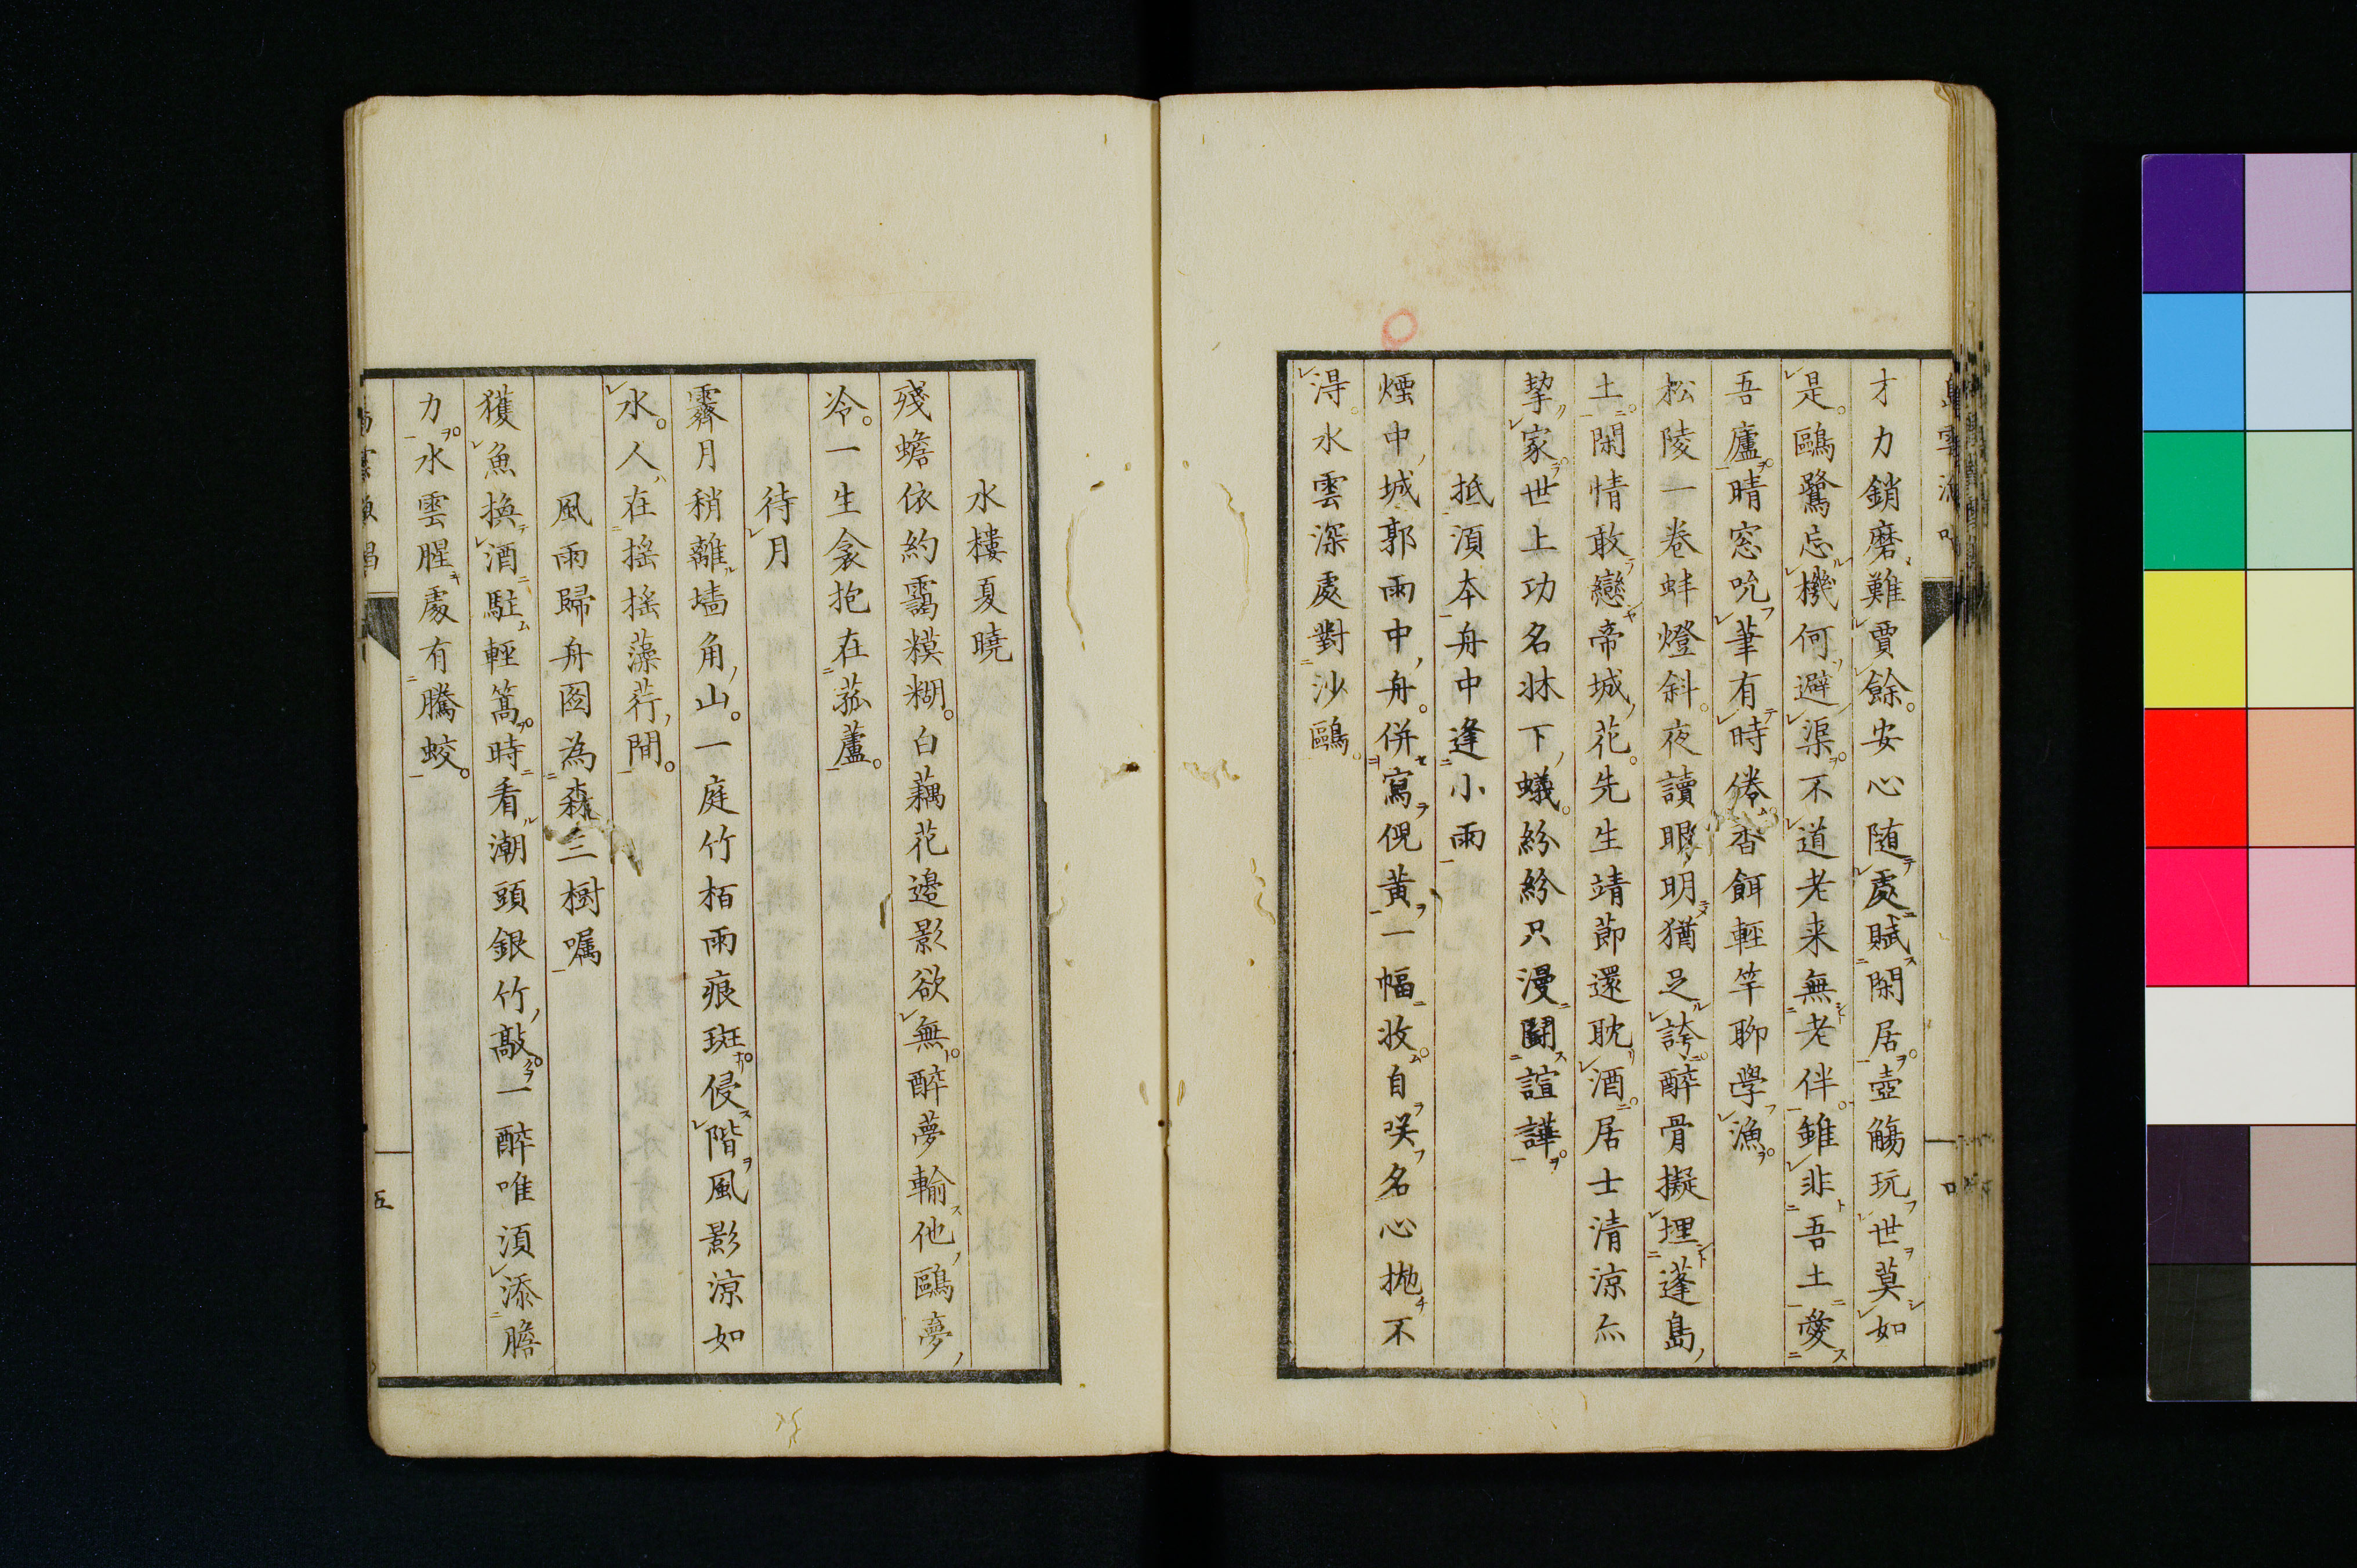 才力銷磨難賈餘安心随處賦閑居壺觴玩世莫如
是鷗鷺忘機何避渠不道老来無老伴雖非吾土愛
吾廬晴窓吮筆有時倦香餌輕竿聊學漁
松陵一卷蚌燈斜夜讀眼明猶足誇醉骨擬埋蓬島
土閑情敢戀帝城花先生靖節還耽酒居士清涼亦
挈家世上功名牀下蟻紛紛只漫鬪諠譁
抵須本舟中逢小雨
煙中城郭雨中舟併寫倪黃一幅收自咲名心抛不
得水雲深處對沙鷗
水樓夏曉
殘蟾依約靄糢糊白藕花邊影欲無醉夢輸他鷗夢
冷一生衾抱在菰蘆
待月
霽月稍離墻角山一庭竹栢雨痕斑侵階風影涼如
水人在搖搖藻荇間
風雨歸舟圖為森三樹囑
獲魚換酒駐輕篙時看潮頭銀竹敲一醉唯須添膽
力水雲腥處有騰蛟
五